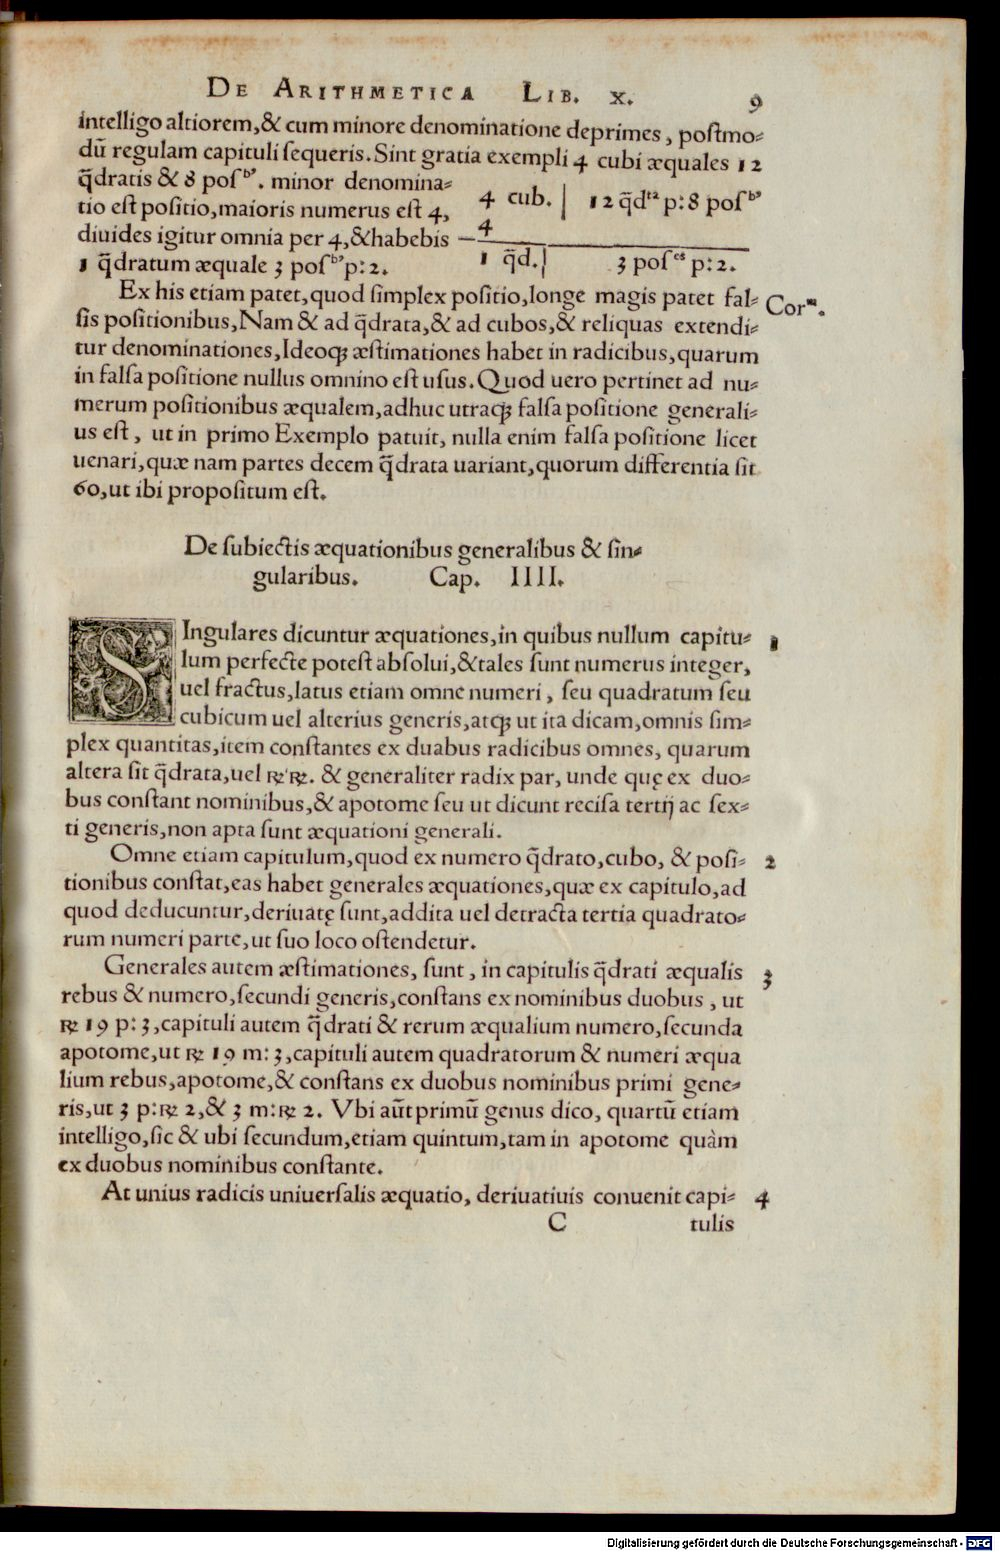 De Arithmetica Lib. x. 9
intelligo altiorem,& cum minore denominatione deprimes, postmo-
dũ regulam capituli sequeris. Sint gratia exempli 4 cubi æquales 12
q̃dratis & 8 posᵇ⁹. minor denomina-
tio est positio, maioris numerus est 4,
diuides igitur omnia per 4,& habebis
1 q̃dratum æquale 3 posᵇ⁹ p: 2.
4 cub. | 12 q̃dᵗᵃ p: 8 posᵇ⁹
4
1 q̃d. | 3 posᵉˢ p: 2.
Ex his etiam patet, quod simplex positio, longe magis patet fal-
Corᵐ.
sis positionibus, Nam & ad q̃drata,& ad cubos,& reliquas extendi-
tur denominationes, Ideoq; æstimationes habet in radicibus, quarum
in falsa positione nullus omnino est usus. Quod uero pertinet ad nu-
merum positionibus æqualem, adhuc utraq; falsa positione generali-
us est, ut in primo Exemplo patuit, nulla enim falsa positione licet
uenari, quæ nam partes decem q̃drata uariant, quorum differentia sit
60, ut ibi propositum est.
De subiectis æquationibus generalibus & sin-
gularibus. Cap. IIII.
SIngulares dicuntur æquationes, in quibus nullum capitu- 1
lum perfecte potest absolui,& tales sunt numerus integer,
uel fractus, latus etiam omne numeri, seu quadratum seu
cubicum uel alterius generis, atq; ut ita dicam, omnis sim-
plex quantitas, item constantes ex duabus radicibus omnes, quarum
altera sit q̃drata, uel ℞ ℞. & generaliter radix par, unde quę ex duo-
bus constant nominibus,& apotome seu ut dicunt recisa tertij ac sex-
ti generis, non apta sunt æquationi generali.
Omne etiam capitulum, quod ex numero q̃drato, cubo, & posi- 2
tionibus constat, eas habet generales æquationes, quæ ex capitulo, ad
quod deducuntur, deriuatę sunt, addita uel detracta tertia quadrato-
rum numeri parte, ut suo loco ostendetur.
Generales autem æstimationes, sunt, in capitulis q̃drati æqualis 3
rebus & numero, secundi generis, constans ex nominibus duobus, ut
℞ 19 p: 3, capituli autem q̃drati & rerum æqualium numero, secunda
apotome, ut ℞ 19 m: 3, capituli autem quadratorum & numeri æqua
lium rebus, apotome,& constans ex duobus nominibus primi gene-
ris, ut 3 p: ℞ 2,& 3 m: ℞ 2. Vbi aũt primũ genus dico, quartũ etiam
intelligo, sic & ubi secundum, etiam quintum, tam in apotome quàm
ex duobus nominibus constante.
At unius radicis uniuersalis æquatio, deriuatiuis conuenit capi- 4
C tulis
Digitalisierung gefördert durch die Deutsche Forschungsgemeinschaft - DFG